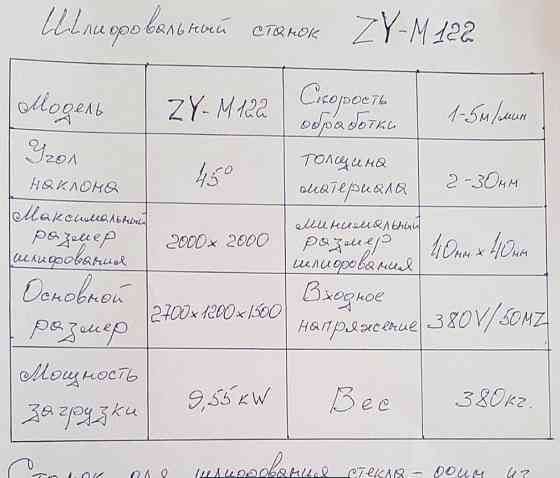 Шлифовальный станок ZY-M122
Модель ZY-M122 Скорость обработки 1-5м/мин
Угол наклона 45° толщина материала 2-30мм
Максимальный размер шлифования 2000×2000 минимальный размер шлифования 40мм×40мм
Основной размер 2700×1200×1500 Входное напряжение 380V/50MZ
Мощность загрузки 9,55кW Вес 380кг.
Станок для шлифования стекла - один из